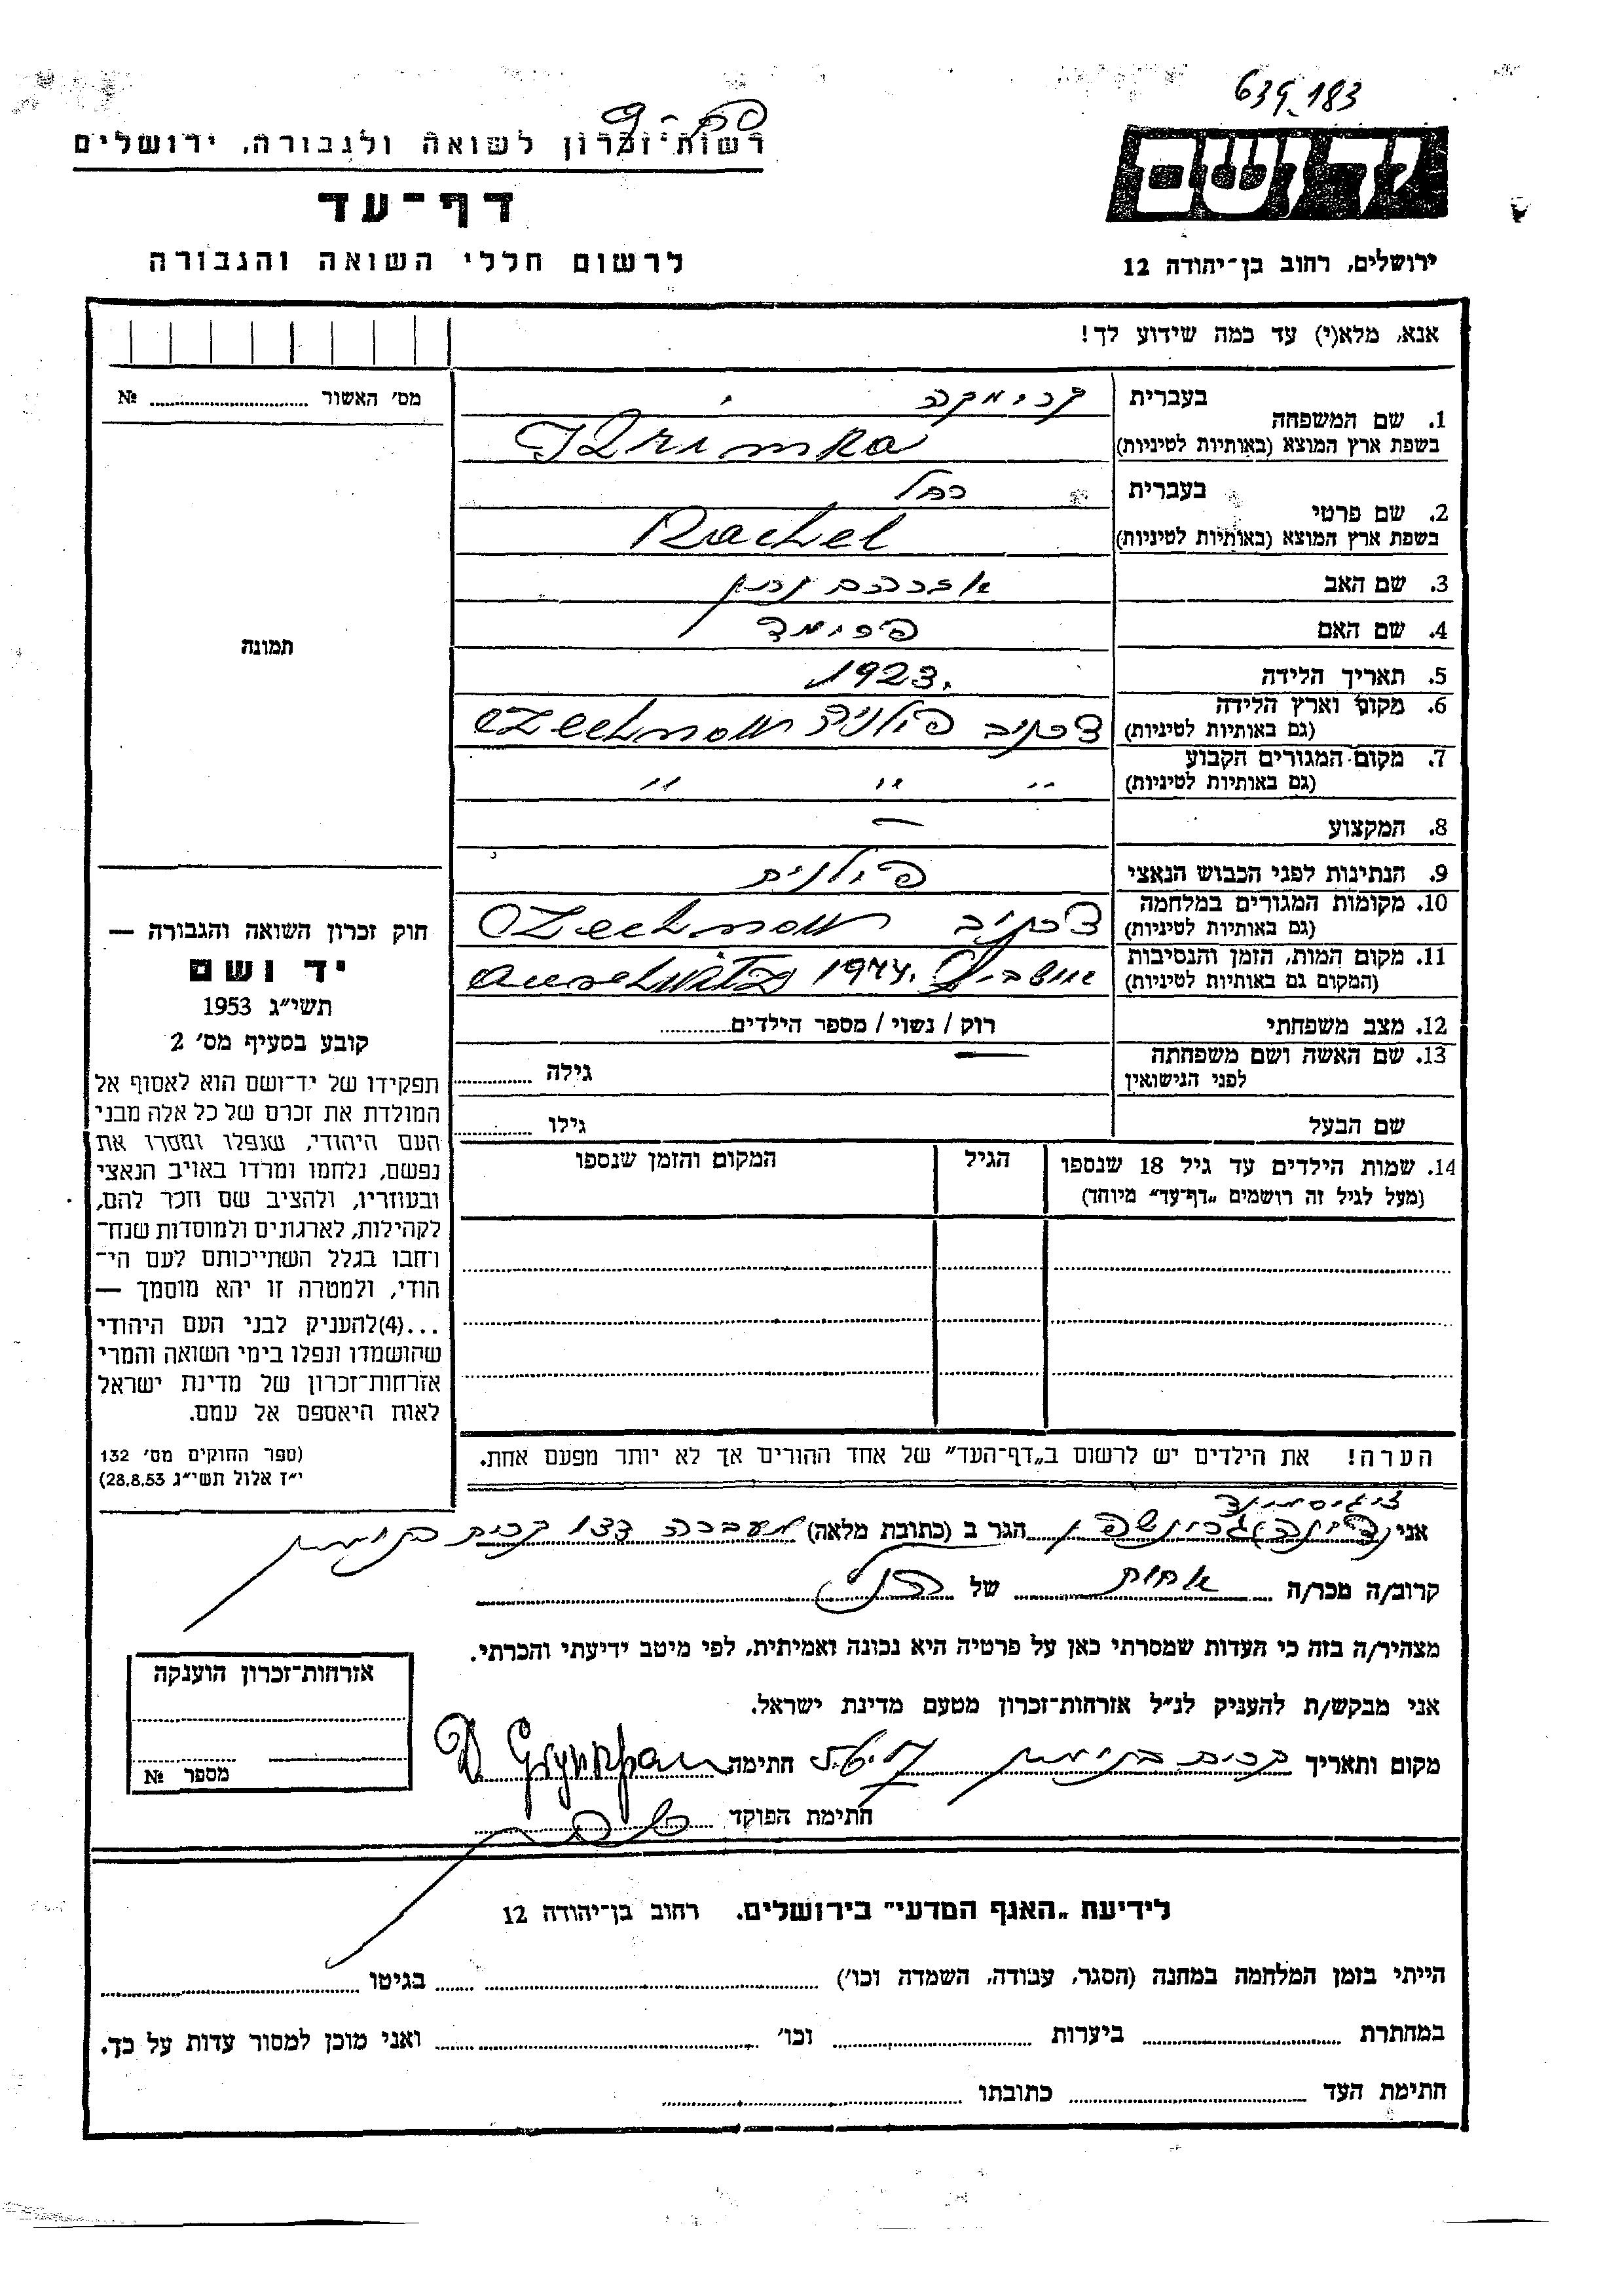 639183
רשות־זכרון לשואה ולגבורה, ירושלים
יד ושם
דף־עד
לרשום חללי השואה והגבורה
ירושלים, רחוב בן־יהודה 12
אנא, מלא(י) עד כמה שידוע לך!
מס׳ האשור № 
1. שם המשפחה
בעברית קרימקה
בשפת ארץ המוצא (באותיות לטיניות) Krimka
2. שם פרטי
בעברית רחל
בשפת ארץ המוצא (באותיות לטיניות) Rachel
3. שם האב אברהם נתן
4. שם האם פרומה
5. תאריך הלידה 1923.
6. מקום וארץ הלידה
(גם באותיות לטיניות) פולניה
7. מקום המגורים הקבוע
(גם באותיות לטיניות) " " "
8. המקצוע —
9. הנתינות לפני הכבוש הנאצי פולנית
10. מקומות המגורים במלחמה
(גם באותיות לטיניות)
11. מקום המות, הזמן והנסיבות
(המקום גם באותיות לטיניות) 1944. Auschwitz
12. מצב משפחתי רוק / נשוי / מספר הילדים
13. שם האשה ושם משפחתה
לפני הנישואין
גילה
שם הבעל גילו
14. שמות הילדים עד גיל 18 שנספו
(מעל לגיל זה רושמים „דף־עד" מיוחד)
הגיל
המקום והזמן שנספו
תמונה
חוק זכרון השואה והגבורה —
יד ושם
תשי״ג 1953
קובע בסעיף מס׳ 2
תפקידו של יד־ושם הוא לאסוף אל
המולדת את זכרם של כל אלה מבני
העם היהודי, שנפלו ומסרו את
נפשם, נלחמו ומרדו באויב הנאצי
ובעוזריו, ולהציב שם וזכר להם,
לקהילות, לארגונים ולמוסדות שנח־
רחבו בגלל השתייכותם לעם הי־
הודי, ולמטרה זו יהא מוסמך —
...(4)להעניק לבני העם היהודי
שהושמדו ונפלו בימי השואה והמרי
אזרחות־זכרון של מדינת ישראל
לאות היאספם אל עמם.
(ספר החוקים מס׳ 132
י״ז אלול תשי״ג 28.8.53)
הערה! את הילדים יש לרשום ב„דף־העד" של אחד ההורים אך לא יותר מפעם אחת.
אני הגר ב (כתובת מלאה) מעברה קרית בנימין
קרוב/ה מכר/ה אחות של הנ״ל
מצהיר/ה בזה כי העדות שמסרתי כאן על פרטיה היא נכונה ואמיתית, לפי מיטב ידיעתי והכרתי.
אני מבקש/ת להעניק לנ״ל אזרחות־זכרון מטעם מדינת ישראל.
מקום ותאריך קרית בנימין חתימה
חתימת הפוקד
אזרחות־זכרון הוענקה
מספר №
לידיעת „האגף המדעי" בירושלים. רחוב בן־יהודה 12
הייתי בזמן המלחמה במחנה (הסגר, עבודה, השמדה וכו׳) בגיטו
במחתרת ביערות וכו׳ ואני מוכן למסור עדות על כך.
חתימת העד כתובתו